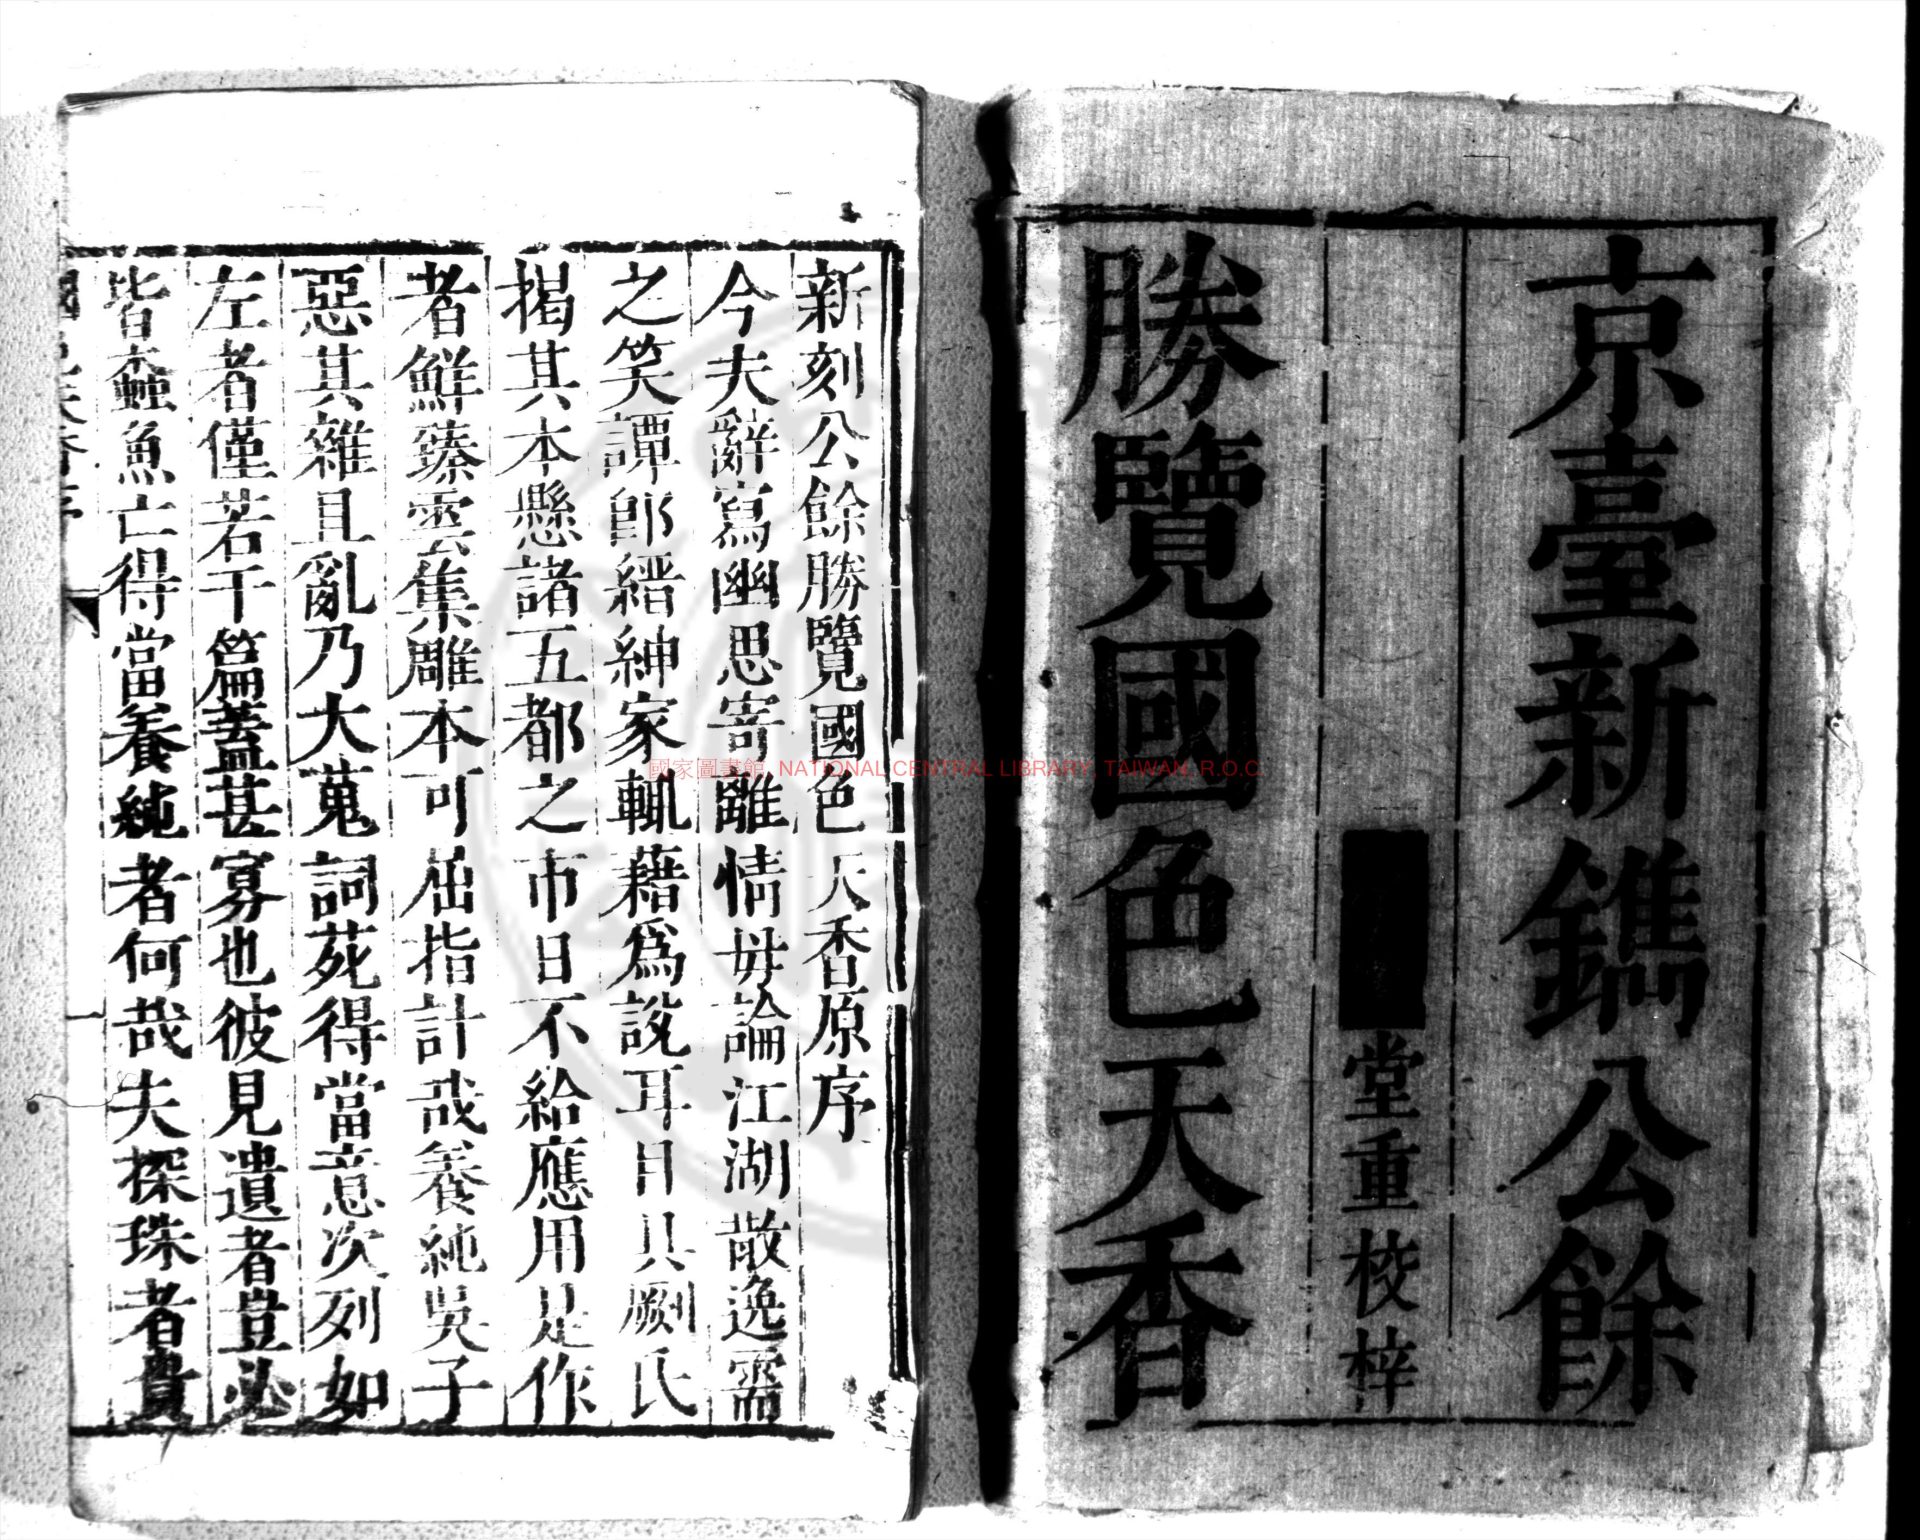 京臺新鐫公餘
堂重校梓
勝覽國色天香
新刻公餘勝覽國色天香原序
今夫辭寫幽思寄離情毋論江湖散逸需
之笑譚卽縉紳家輒藉爲談耳目具劂氏
揭其本懸諸五都之市日不給應用是作
者鮮臻雲集雕本可屈指計哉養純吳子
惡其雜且亂乃大蒐詞苑得當意次列如
左者僅若干篇蓋甚寡也彼見遺者豈必
皆蠹魚亡得當養純者何哉夫探珠者貴
國色天香序
一
國家圖書館, NATIONAL CENTRAL LIBRARY, TAIWAN, R.O.C.